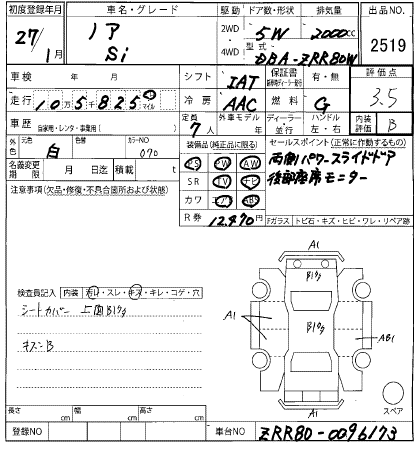 初度登録年月 車名・グレード 駆動 ドア数・形状 排気量 出品NO.
27/1月 ノア Si 2WD 4WD 5W 2000cc 2519
型式 DBA-ZRR80W
車検 年 月 シフト IAT 保証書 有・無 評価点
走行 10万5千825 km マイル 冷房 AAC 燃料 G 3.5
車歴 自家用・レンタ・事業用( ) 定員 7人 外車モデル 年 ディーラー・並行 ハンドル 左・右 内装評価 B
外色 元色 白 カラーNO 070
装備品(純正品に限る) セールスポイント(正常に動作するもの)
PS PW AW 両側パワースライドドア
名義変更期限 月 日迄 積載 t SR TV ナビ 後部座席モニター
注意事項(欠品・修復・不具合箇所および状態) カワ エアB ABS
R券 12,470円
Fガラス トビ石・キズ・ヒビ・ワレ・リペア跡
A1
Bワク
検査員記入 内装 汚れ・スレ・キズ・キレ・コゲ・穴
シートカバー 上面Bワク
A1 Bワク AB1
キズンB
A1
スペア
長さ cm 幅 cm 高さ cm
登録NO 車台NO ZRR80-0096173